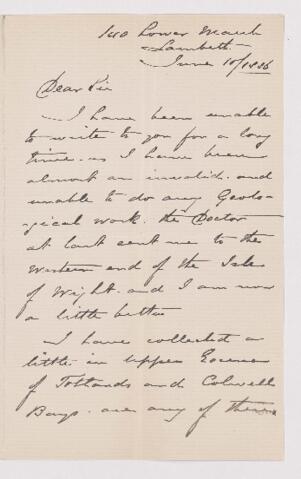 140 Lower Marsh
Lambeth
June 10/1886
Dear Sir
I have been unable
to write to you for a long
time. as I have been
almost an invalid. and
unable to do any Geolo-
gical work. the Doctor
at last sent me to the
Western end of the Isle
of Wight. and I am now
a little better
I have collected a
little in Upper Eocene
of Totlands and Colwell
Bays. are any of them